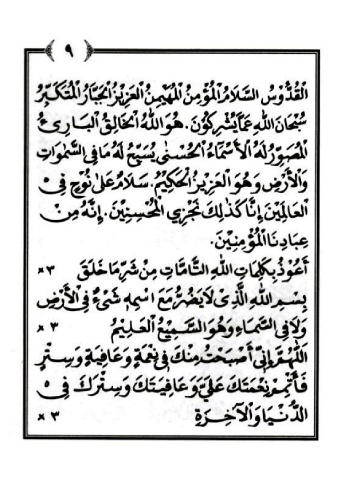 ﴿ ٩ ﴾
الْقُدُّوْسُ السَّلَامُ الْمُؤْمِنُ الْمُهَيْمِنُ الْعَزِيْزُ الْجَبَّارُ الْمُتَكَبِّرُ
سُبْحَانَ اللهِ عَمَّا يُشْرِكُوْنَ. هُوَ اللهُ الْخَالِقُ الْبَارِئُ
الْمُصَوِّرُ لَهُ الْأَسْمَآءُ الْحُسْنٰى يُسَبِّحُ لَهُ مَا فِى السَّمٰوَاتِ
وَالْأَرْضِ وَهُوَ الْعَزِيْزُ الْحَكِيْمُ. سَلَامٌ عَلٰى نُوْحٍ فِى
الْعَالَمِيْنَ إِنَّا كَذٰلِكَ نَجْزِى الْمُحْسِنِيْنَ. إِنَّهُ مِنْ
عِبَادِنَا الْمُؤْمِنِيْنَ.
أَعُوْذُ بِكَلِمَاتِ اللهِ التَّامَّاتِ مِنْ شَرِّ مَا خَلَقَ ×٣
بِسْمِ اللهِ الَّذِى لَا يَضُرُّ مَعَ اسْمِهِ شَىْءٌ فِى الْأَرْضِ
وَلَا فِى السَّمَآءِ وَهُوَ السَّمِيْعُ الْعَلِيْمُ ×٣
اَللّٰهُمَّ إِنِّى أَصْبَحْتُ مِنْكَ فِى نِعْمَةٍ وَعَافِيَةٍ وَسِتْرٍ
فَأَتْمِمْ نِعْمَتَكَ عَلَيَّ وَعَافِيَتَكَ وَسِتْرَكَ فِى
الدُّنْيَا وَالْآخِرَةِ ×٣